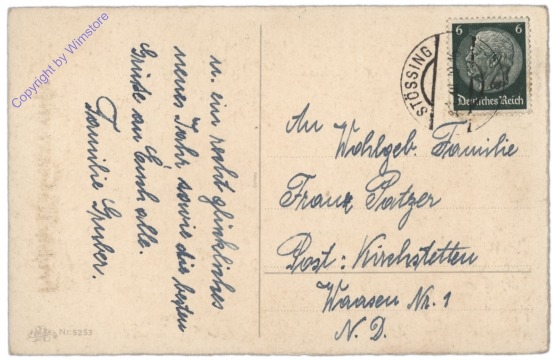 u. ein recht glückliches
neues Jahr sowie die besten
Grüße an Euch alle.
Familie Gruber.
An
Wohlgeb. Familie
Franz Patzer
Post: Kirchstetten
Waasen Nr. 1
N. D.
6 6
Deutsches Reich
STÖSSING
Nr. 5253
Copyright by Wimstore